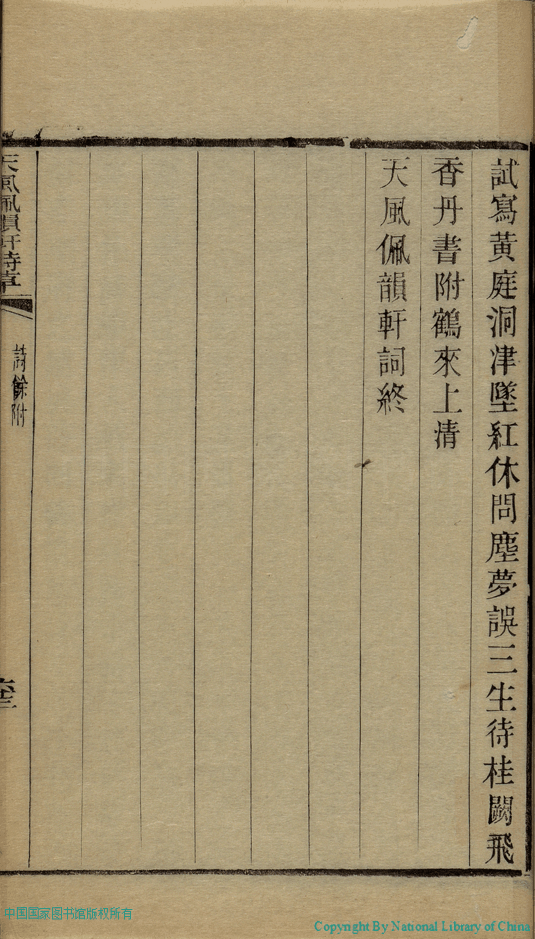 試寫黃庭洞津墜紅休問塵夢誤三生待桂闕飛
香丹書附鶴來上清
天風佩韻軒詞終
天風佩韻軒詩草
詩餘附
中国国家图书馆版权所有
Copyright By National Library of China